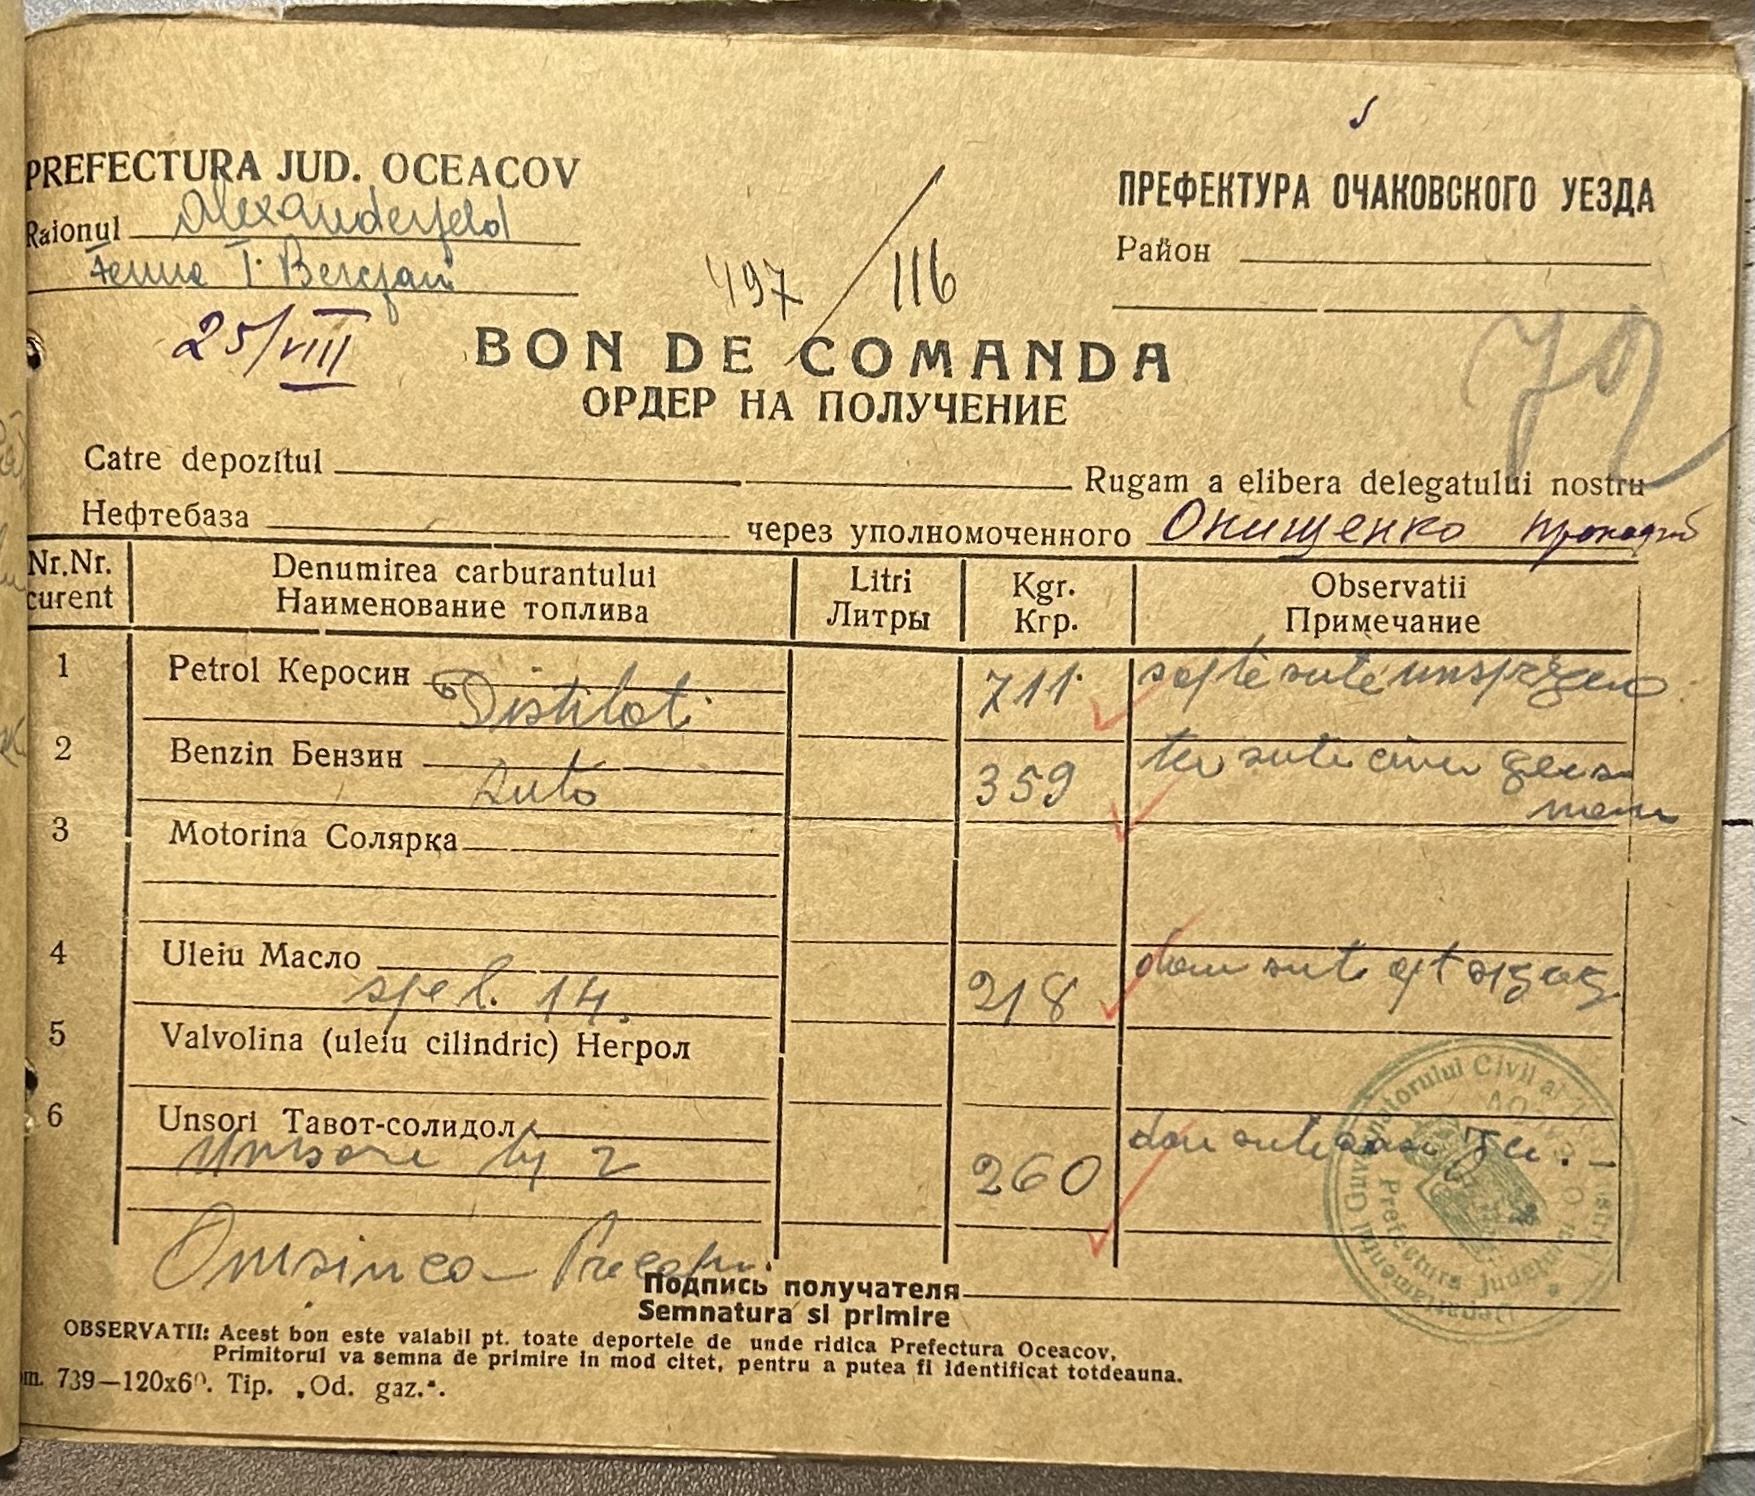 PREFECTURA JUD. OCEACOV
ПРЕФЕКТУРА ОЧАКОВСКОГО УЕЗДА
Raionul Alexanderfeld
Район
497/116
25/VIII
72
BON DE COMANDA
ОРДЕР НА ПОЛУЧЕНИЕ
Catre depozitul Rugam a elibera delegatului nostru
Нефтебаза через уполномоченного Онищенко
Nr.Nr. curent Denumirea carburantului Litri Kgr. Observatii
Наименование топлива Литры Кгр. Примечание
1 Petrol Керосин Distilat 711 sapte sute unsprezece
2 Benzin Бензин Auto 359 trei sute cinci zeci si
3 Motorina Солярка
4 Uleiu Масло 14. 218 doua sute
5 Valvolina (uleiu cilindric) Негрол
6 Unsori Тавот-солидол
Unsore 2 260 doua sute
Подпись получателя
Semnatura si primire
OBSERVATII: Acest bon este valabil pt. toate deportele de unde ridica Prefectura Oceacov,
Primitorul va semna de primire in mod citet, pentru a putea fi identificat totdeauna.
739—120x60. Tip. „Od. gaz.“.
Guvernatorului Civil al
Prefectura Judetului